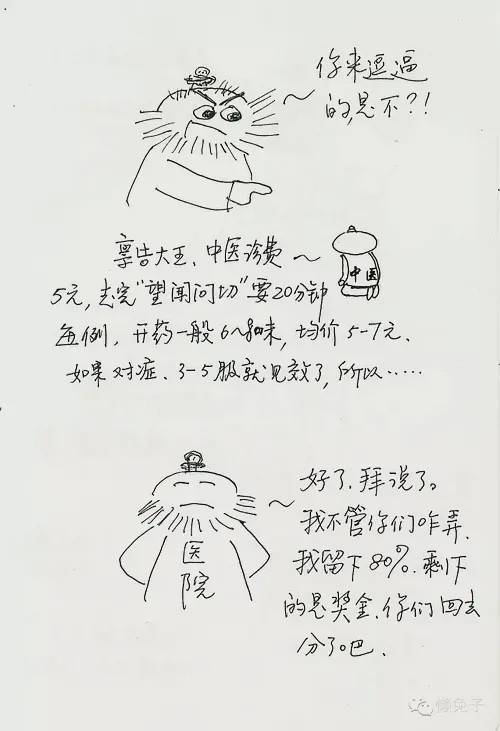 你来逗逼
的,是不?!
禀告大王、中医诊费
中医
5元,走完“望闻问切”要20分钟
每例,开药一般6~8味,均价5-7元.
如果对症、3-5服就见效了,所以……
好了.拜说了。
我不管你们咋弄.
医院
我留下80%.剩下
的是奖金.你们回去
分了吧.
懒兔子